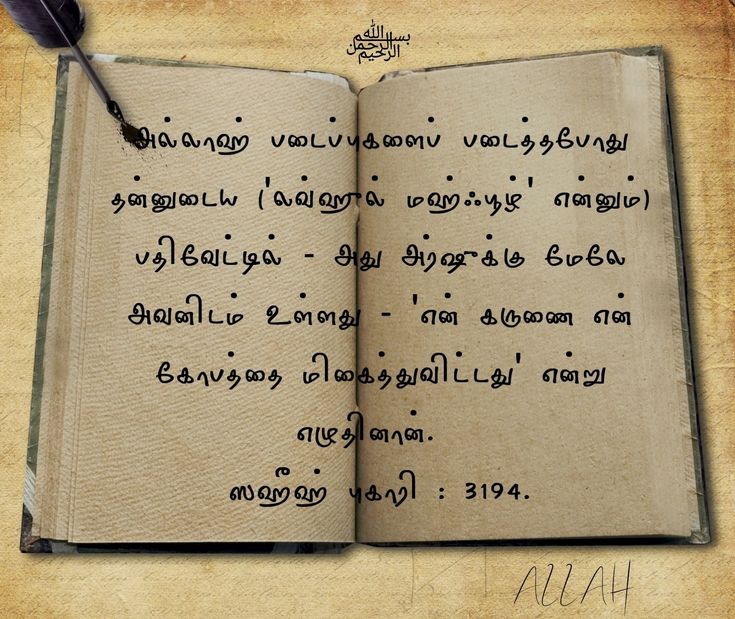 بسم الله الرحمن الرحيم
அல்லாஹ் படைப்புகளைப் படைத்தபோது
தன்னுடைய ('லவ்ஹுல் மஹ்ஃபூழ்' என்னும்)
பதிவேட்டில் - அது அர்ஷுக்கு மேலே
அவனிடம் உள்ளது - 'என் கருணை என்
கோபத்தை மிகைத்துவிட்டது' என்று
எழுதினான்.
ஸஹீஹ் புகாரி : 3194.
ALLAH